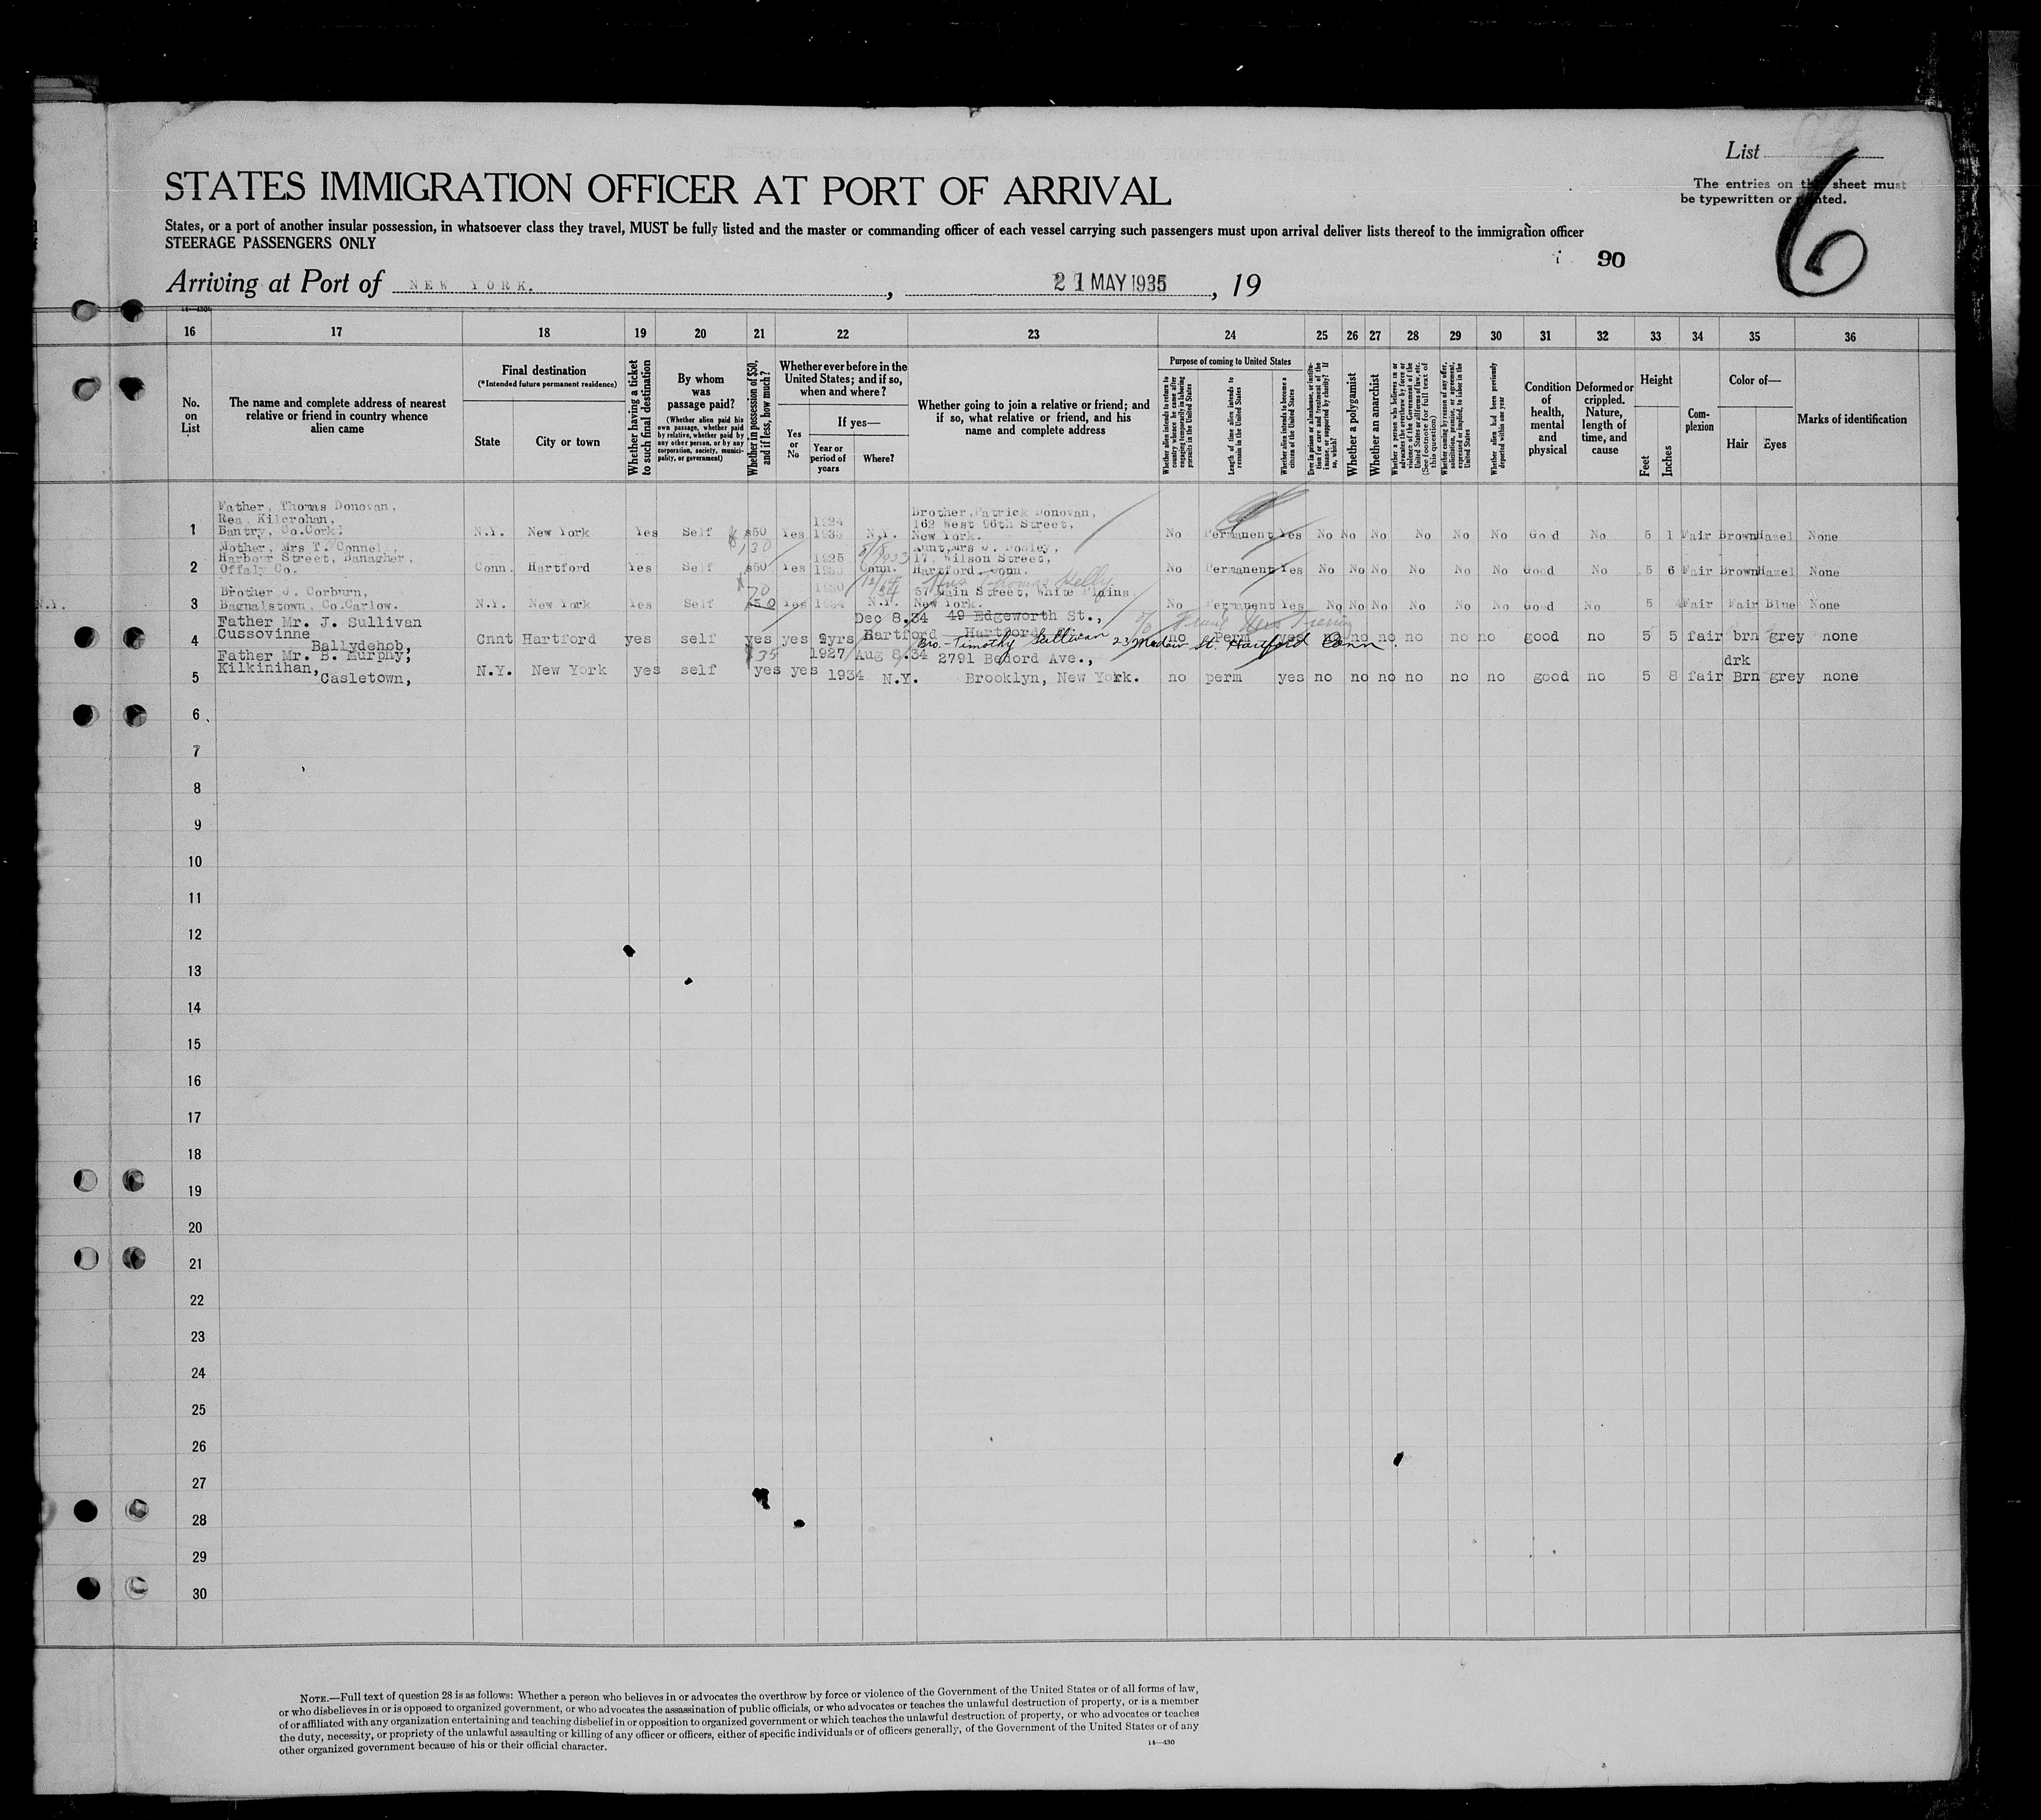 List
The entries on this sheet must
be typewritten or printed.
6
STATES IMMIGRATION OFFICER AT PORT OF ARRIVAL
States, or a port of another insular possession, in whatsoever class they travel, MUST be fully listed and the master or commanding officer of each vessel carrying such passengers must upon arrival deliver lists thereof to the immigration officer
STEERAGE PASSENGERS ONLY
90
Arriving at Port of NEW YORK. , 21 MAY 1935 , 19
16 17 18 19 20 21 22 23 24 25 26 27 28 29 30 31 32 33 34 35 36
No. on List
The name and complete address of nearest relative or friend in country whence alien came
Final destination
(*Intended future permanent residence)
State
City or town
Whether having a ticket to such final destination
By whom was passage paid?
(Whether alien paid his own passage, whether paid by relative, whether paid by any other person, or by any corporation, society, municipality, or government)
Whether in possession of $50, and if less, how much?
Whether ever before in the United States; and if so, when and where?
Yes or No
If yes—
Year or period of years
Where?
Whether going to join a relative or friend; and if so, what relative or friend, and his name and complete address
Purpose of coming to United States
Whether alien intends to return to country whence he came after engaging temporarily in laboring pursuits in the United States
Length of time alien intends to remain in the United States
Whether alien intends to become a citizen of the United States
Ever in prison or almshouse, or institution for care and treatment of the insane, or supported by charity? If so, which?
Whether a polygamist
Whether an anarchist
Whether a person who believes in or advocates the overthrow by force or violence of the Government of the United States or all forms of law, etc. (See footnote for full text of this question)
Whether coming by reason of any offer, solicitation, promise, or agreement, expressed or implied, to labor in the United States
Whether alien had been previously deported within one year
Condition of health, mental and physical
Deformed or crippled. Nature, length of time, and cause
Height
Feet
Inches
Complexion
Color of—
Hair
Eyes
Marks of identification
Father, Thomas Donovan,
Rea, Kilcrohan,
Bantry, Co.Cork.
1 N.Y. New York Yes Self $50 $130 Yes 1924 1933 N.Y. Brother, Patrick Donovan,
162 West 96th Street,
New York.
No Permanent Yes No No No No No No Good No 5 1 Fair Brown Hazel None
Mother, Mrs T. Connell,
Harbour Street, Banagher,
Offaly Co.
2 Conn. Hartford Yes Self $50 Yes 1925 1933 Conn. Aunt, Mrs J. Dooley,
17, Wilson Street,
Hartford. Conn.
No Permanent Yes No No No No No No Good No 5 6 Fair Brown Hazel None
Brother, J. Corburn,
Bagnalstown, Co.Carlow.
3 N.Y. New York Yes Self $50 70 Yes 1930 1934 12/34 N.Y. Mrs Thomas Kelly
57 Main Street, White Plains
New York.
No Permanent Yes No No No No No No Good No 5 Fair Fair Blue None
Father Mr. J. Sullivan
Cussovinne
Ballydehob,
4 Cnnt Hartford yes self yes yes 9yrs Dec 8.34 Hartford 49 Edgeworth St.,
Hartford
Bro. - Timothy Sullivan 23 Madison St. Hartford Conn.
no perm yes no no no no no no good no 5 5 fair brn grey none
Father Mr. B. Murphy,
Kilkinihan,
Casletown,
5 N.Y. New York yes self $35 yes yes 1927 1934 Aug 8.34 N.Y. 2791 Bedord Ave.,
Brooklyn, New York.
no perm yes no no no no no no good no 5 8 fair drk Brn grey none
N.Y.
6
7
8
9
10
11
12
13
14
15
16
17
18
19
20
21
22
23
24
25
26
27
28
29
30
NOTE.—Full text of question 28 is as follows: Whether a person who believes in or advocates the overthrow by force or violence of the Government of the United States or of all forms of law,
or who disbelieves in or is opposed to organized government, or who advocates the assassination of public officials, or who advocates or teaches the unlawful destruction of property, or is a member
of or affiliated with any organization entertaining and teaching disbelief in or opposition to organized government or which teaches the unlawful destruction of property, or who advocates or teaches
the duty, necessity, or propriety of the unlawful assaulting or killing of any officer or officers, either of specific individuals or of officers generally, of the Government of the United States or of any
other organized government because of his or their official character.
14—430